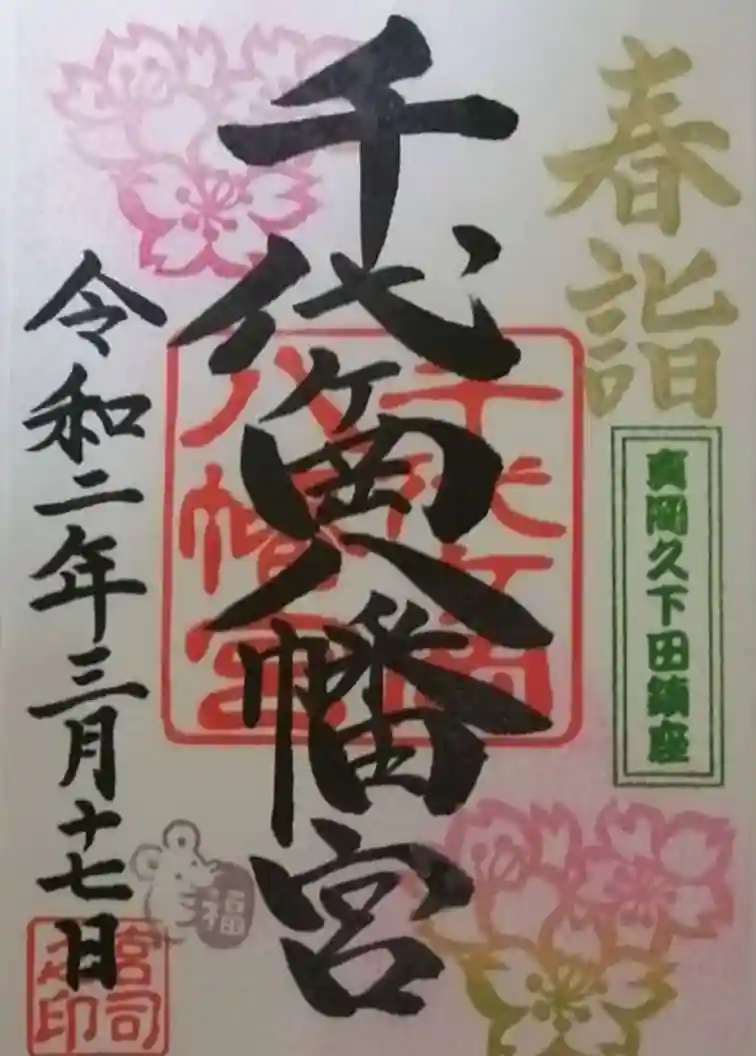 春詣
真岡久下田鎮座
千代ヶ岡八幡宮
千代ヶ岡
八幡宮
令和二年三月十七日
福
宮司
之印